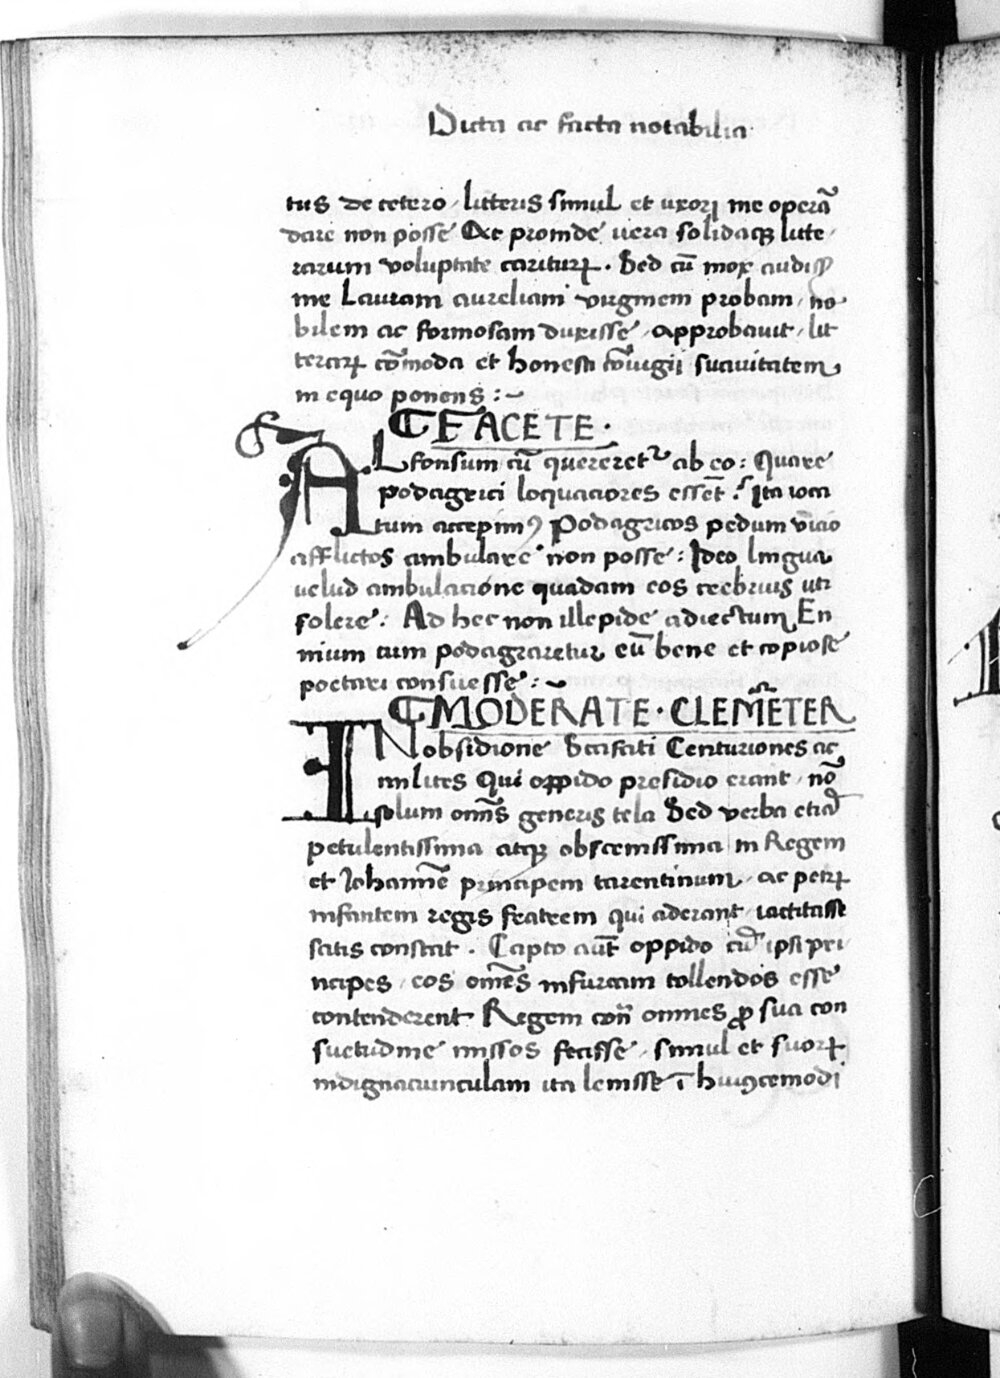 Dicta ac facta notabilia
tus de cetero, litteris simul et uxori me operā
dare non posse Ac proinde uera solidaqꝫ litte
rarum voluptate cariturꝫ. Sed cū mox audiss;
me Lauram aureliam virginem probam, no
bilem ac formosam duxisse, approbauit, lit
terarꝝ cōmoda et honesti cōiugii suauitatem
in equo ponens :~
¶ FACETE.
ALfonsum cū quereretᷣ ab eo: Quare
podagrici loquaciores essēt? Ita ioca
tum accepimꝰ Podagricos pedum vicio
afflictos ambulare non posse: Ideo lingua
uelud ambulacione quadam eos crebrius uti
solere: Ad hec non illepide adiectum, En
nium tum podagraretur, cū bene et copiose
poetari consuesse :~
¶ MODERATE. CLEMĒTER
IN obsidione Scafati Centuriones ac
milites Qui oppido presidio erant, nō
solum om̄s generis tela Sed verba etiā
petulentissima atqꝫ obscenissima in Regem
et Iohannē principem tarentinum, ac petrꝫ
infantem regis fratrem qui aderant, iactitasse
satis constat. Capto aūt oppido cū ipsi pri
ncipes, eos om̄es in furcam tollendos esse
contenderent Regem con̄ omnes ꝓ sua con
suetudine missos fecisse, simul et suorꝝ
indignaciunculam ita lenisse ī huiꝰcemodi